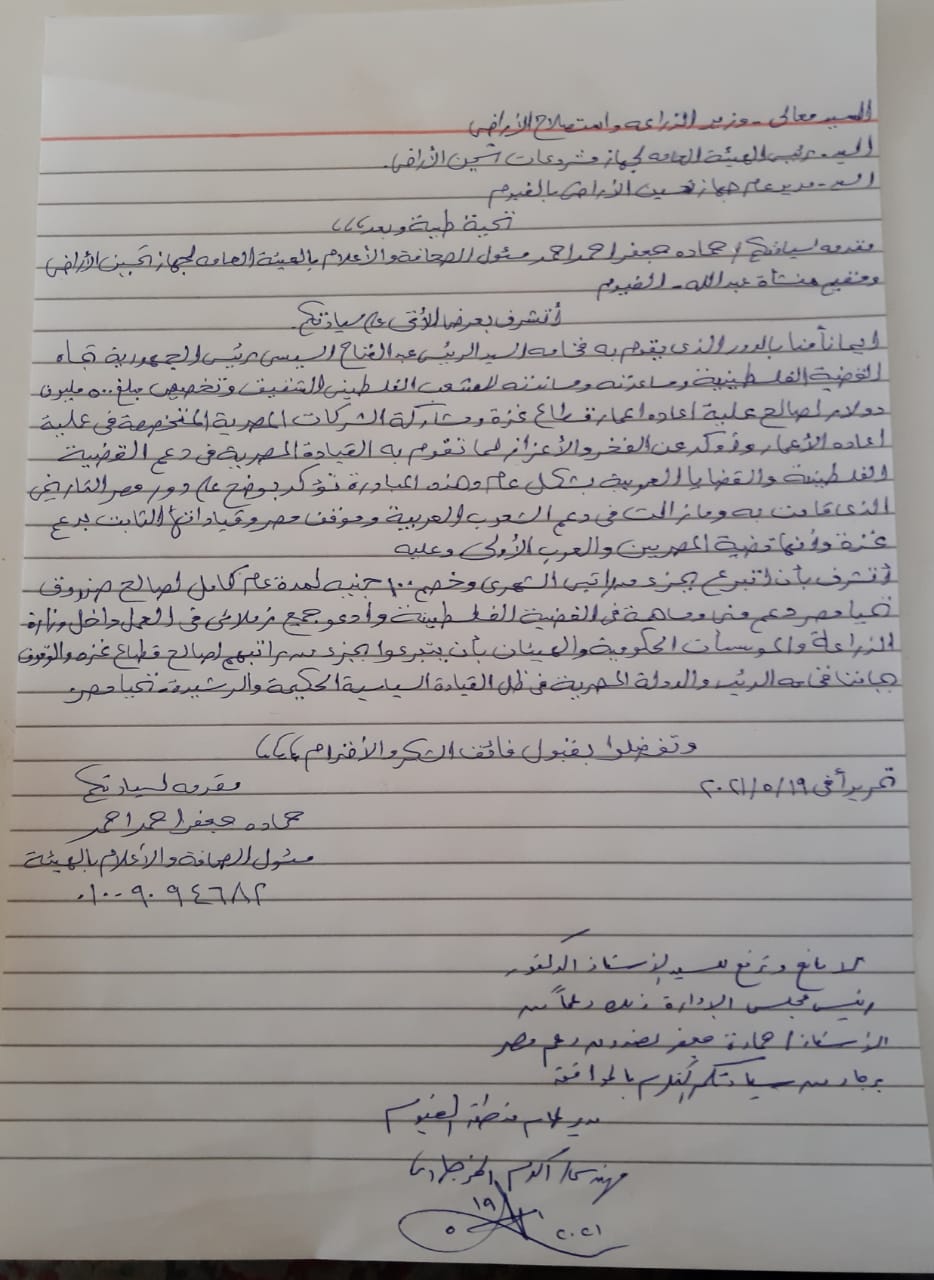 السيد معالى - وزير الزراعه واستصلاح الأراضى
السيد - رئيس الهيئة العامه لجهاز مشروعات تحسين الأراضى.
السيد - مدير عام جهاز تحسين الأراضى بالفيوم
تحية طيبة وبعد،،،
مقدمه لسيادتكم / حماده جعفر احمد احمد مسئول الصحافة والأعلام بالهيئة العامه لجهاز تحسين الأراضى
ومقيم منشأة عبدالله - الفيوم
أتشرف بعرض الأتى على سيادتكم.
ايمانا منا بالدور الذى يقوم به فخامه السيد الرئيس عبدالفتاح السيسى رئيس الجمهورية تجاه
القضية الفلسطينية ومساعدته ومساندته للشعب الفلسطينى الشقيق وتخصيص مبلغ ٥٠٠ مليون
دولار لصالح عملية اعاده اعمار قطاع غزة ومشاركة الشركات المصرية المتخصصة فى عملية
اعاده الأعمار وأوكد عن الفخر والأعزاز لما تقوم به القيادة المصرية فى دعم القضية
الفلسطينية والقضايا العربية بشكل عام وهذه المبادرة تؤكد بوضح على دور مصر التاريخى
الذى قامت به ومازالت فى دعم الشعوب العربية وموقف مصر وقياداتها الثابت بدعم
غزة وأنها قضية المصريين والعرب الأولى وعليه
أتشرف بأن اتبرع بجزء من راتبى الشهرى وخصم ١٠٠ جنيه لمدة عام كامل لصالح صندوق
تحيا مصر دعم منى ومساهمة فى القضية الفلسطينية وأدعو جميع زملائى فى العمل داخل وزارة
الزراعة والموسسات الحكومية والهيئات بأن يتبرعوا بجزء من راتبهم لصالح قطاع غزه والوقوف
بجانب فخامه الرئيس والدولة المصرية فى ظل القيادة السياسية الحكيمة والرشيدة. تحيا مصر
وتفضلوا بقبول فائق الشكر والأحترام،،،،
تحريرأ فى ١٩/٥/٢٠٢١
مقدمه لسيادتكم
حماده جعفر احمد احمد
مسئول الصحافة والأعلام بالهيئة
٠١٠٠٩٠٩٤٦٨٢
لا مانع وترفع للسيد الأستاذ الدكتور
رئيس مجلس الإدارة وذلك دعماً من
الأستاذ / حمادة جعفر لصندوق دعم مصر
برجاء من سيادتكم التكرم بالموافقة
مدير عام منطقة الفيوم
مهندس / اكرم
١٩
٥
٢٠٢١